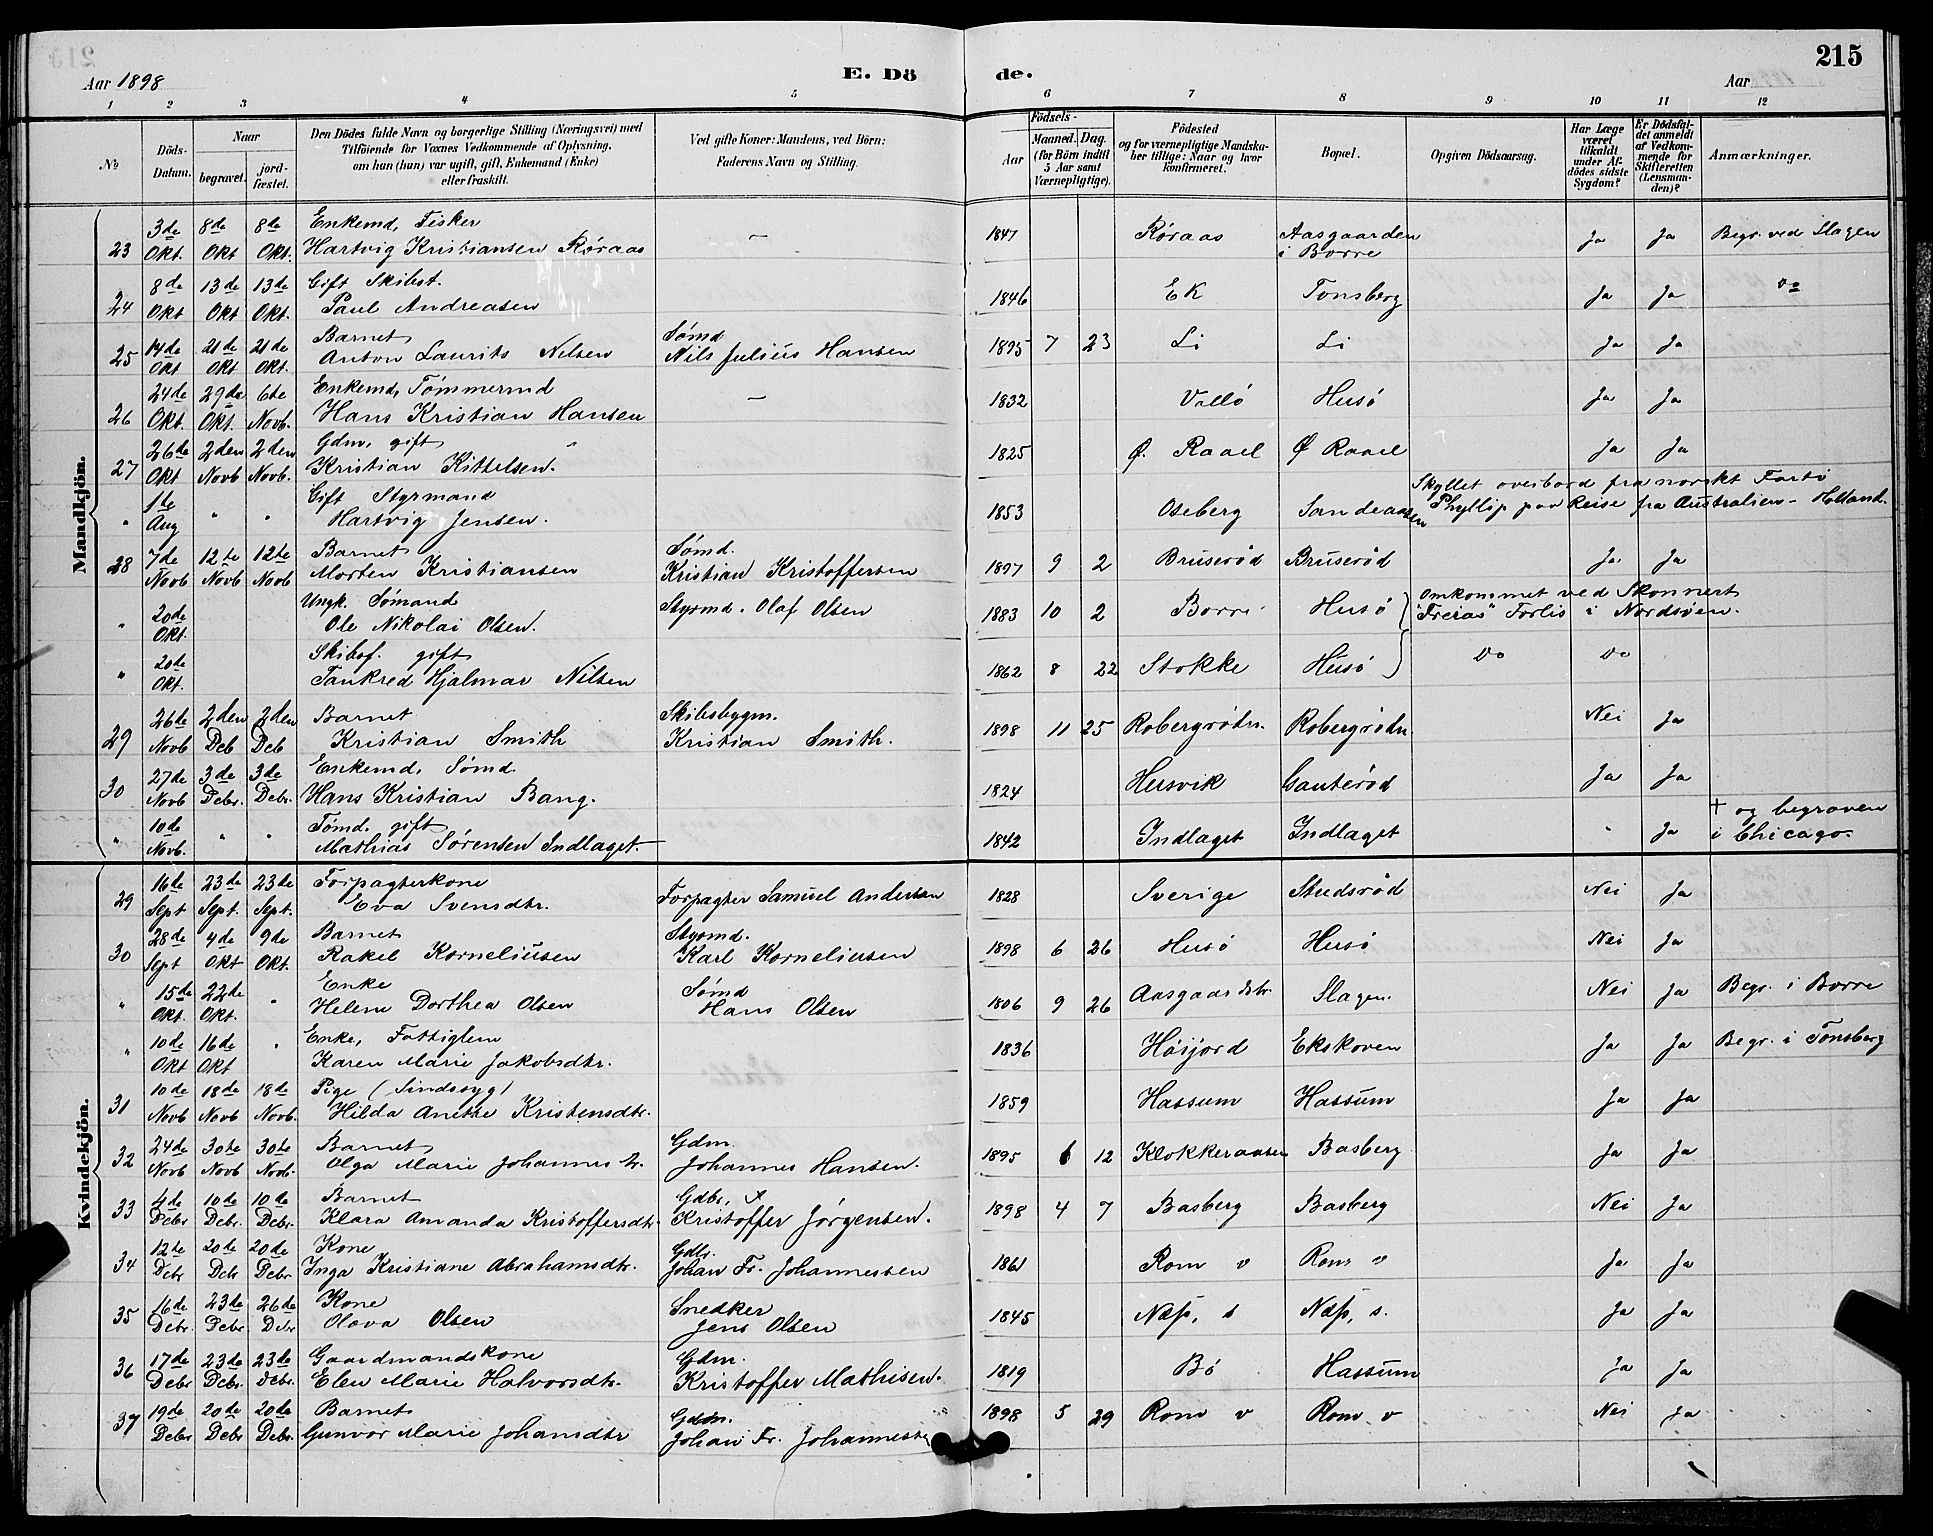 Aar 1898
E. Dö
de.
Aar
215
1 2 3 4 5 6 7 8 9 10 11 12
№
Döds-Datum.
Naar
begravet.
jordfæstet.
Den Dödes fulde Navn og borgerlige Stilling (Næringsvei) med
Tilföiende for Voxnes Vedkommende af Oplysning,
om han (hun) var ugift, gift, Enkemand (Enke)
eller fraskilt.
Ved gifte Koner: Mandens, ved Börn:
Faderens Navn og Stilling.
Födsels-
Aar
Maaned. Dag.
(for Börn indtil
5 Aar samt
Værnepligtige).
Födested
og for værnepligtige Mandskaber tillige: Naar og hvor
konfirmeret.
Bopæl.
Opgiven Dödsaarsag.
Har Læge været tilkaldt under Afdödes sidste Sygdom?
Er Dödsfaldet anmeldt af Vedkommende for Skifteretten (Lensmanden)?
Anmærkninger.
Mandkjön.
23 3de Okt. 8de Okt 8de Okt. Enkemd, Fisker
Hartvig Kristiansen Røraas — 1847 Røraas Aasgaarden i Borre Ja Ja Begr. ved Slagen
24 8de Okt 13de Okt 13de Okt. Gift Skibst.
Paul Andreasen 1846 Ek Tønsberg Ja Ja Do
25 14de Okt 21de Okt 21de Okt. Barnet
Anton Laurits Nilsen Sømd Nils Julius Hansen 1895 7 23 Li Li Ja Ja
26 24de Okt. 29de Okt. 6te Novb. Enkemd, Tømmermd
Hans Kristian Hansen — 1832 Valló Husó Ja Ja
27 26de Okt 2den Novb 2den Novb. Gdm, gift
Kristian Kittelsen. 1825 Ø. Raael Ø Raael Ja Ja
" 1ste Aug " " Gift Styrmand
Hartvig Jensen. 1853 Oseberg Sandeaasen Skyllet overbord fra norskt Fartó
Phyllip paa Reise fra Australien - Holland.
28 7de Novb 12te Novb 12te Novb Barnet
Morten Kristiansen Sømd. Kristian Kristoffersen 1897 9 2 Bruserød Bruserød Ja Ja
" 20de Okt. Ungk. Sømand
Ole Nikolai Olsen. Styrmd. Olaf Olsen 1883 10 2 Borre Husó Omkommet ved Skonnert
"Freias" Forlis i Nordsøen.
" 20de Okt. Skibsf. gift
Tankred Hjalmar Nilsen 1862 8 22 Stokke Husó Do Do
29 26de Novb 2den Deb 2den Deb Barnet
Kristian Smith Skibsbygm. Kristian Smith. 1898 11 25 Robergrødn. Robergrødn. Nei Ja
30 27de Novb 3de Debr. 3de Debr. Enkemd, Sømd.
Hans Kristian Bang. 1824 Husvik Gauterød Ja Ja
" 10de Novb. " " Tømd. gift
Mathias Sørensen Indlaget. 1842 Indlaget Indlaget " Ja + og begraven
i Chicago.
Kvindekjön.
29 16de Sept 23de Sept. 23de Sept. Forpagterkone
Eva Svensdtr. Forpagter Samuel Andersen 1828 Sverige Studsrød Nei Ja
30 28de Sept 4de Okt 9de Okt. Barnet
Rakel Korneliusen Styrmd. Karl Korneliusen 1898 6 26 Husó Husó Nei Ja
" 15de Okt. 22de Okt. " Enke
Helene Dorthea Olsen Sømd Hans Olsen 1806 9 26 Aasgaardstr. Slagen. Nei Ja Begr. i Borre
" 10de Okt 16de Okt " Enke, Fattiglem
Karen Marie Jakobsdtr. 1836 Høijord Ekskoven Ja Ja Begr. i Tønsberg
31 10de Novb 18de Novb 18de Novb. Pige (Sindssyg)
Hilda Anette Kristensdtr. 1859 Hassum Hassum Ja Ja
32 24de Novb 30te Novb 30te Novb. Barnet
Olga Marie Johannesdtr. Gdm. Johannes Hansen. 1895 6 12 Klokkeraasen Basberg Ja Ja
33 4de Debr. 10de Debr. 10de Debr. Barnet
Klara Amanda Kristoffersdtr. Gdbr, Kristoffer Jørgensen. 1898 4 7 Basberg Basberg Nei Ja
34 12te Debr 20de Debr 20de Debr Kone
Inga Kristiane Abrahamsdtr. Gdbr. Johan Fr. Johannessen 1861 Rom v Rom v Ja Ja
35 16de Debr. 23de Debr. 26de Debr Kone
Olava Olsen Snedker Jens Olsen 1845 Næss, s Næss, s. Ja Ja
36 17de Debr 23de Debr. 23de Debr. Gaardmandskone
Elen Marie Halvorsdtr. Gdm. Kristoffer Mathisen. 1819 Bó Hassum Ja Ja
37 19de Debr 20de Debr 20de Debr. Barnet
Gunvor Marie Johansdtr Gdbr. Johan Fr. Johannesse 1898 5 29 Rom v Rom v Nei Ja